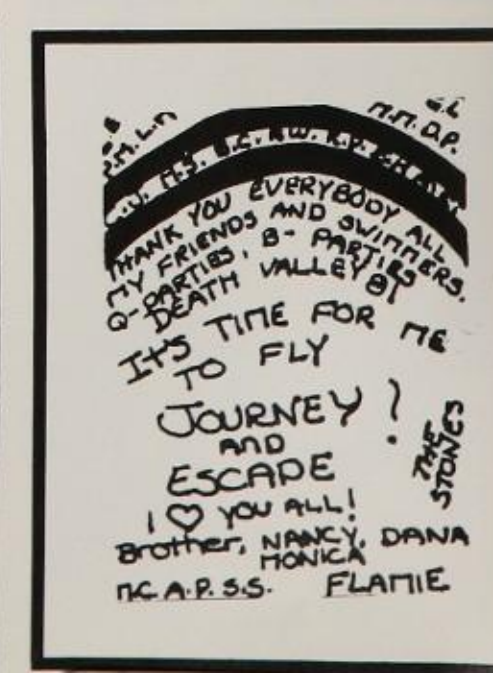 P.M.L.M
G.L
M.M. D.P.
M.S. B.C. A.W. R.P.
THANK YOU EVERYBODY ALL
MY FRIENDS AND SWIMMERS.
Q-PARTIES, B-PARTIES
DEATH VALLEY 81
IT'S TIME FOR ME
TO FLY
JOURNEY ?
AND
ESCAPE
THE
STONES
I ♡ YOU ALL!
Brother, NANCY, DANA
MONICA
M.C A.P. S.S. FLAMIE